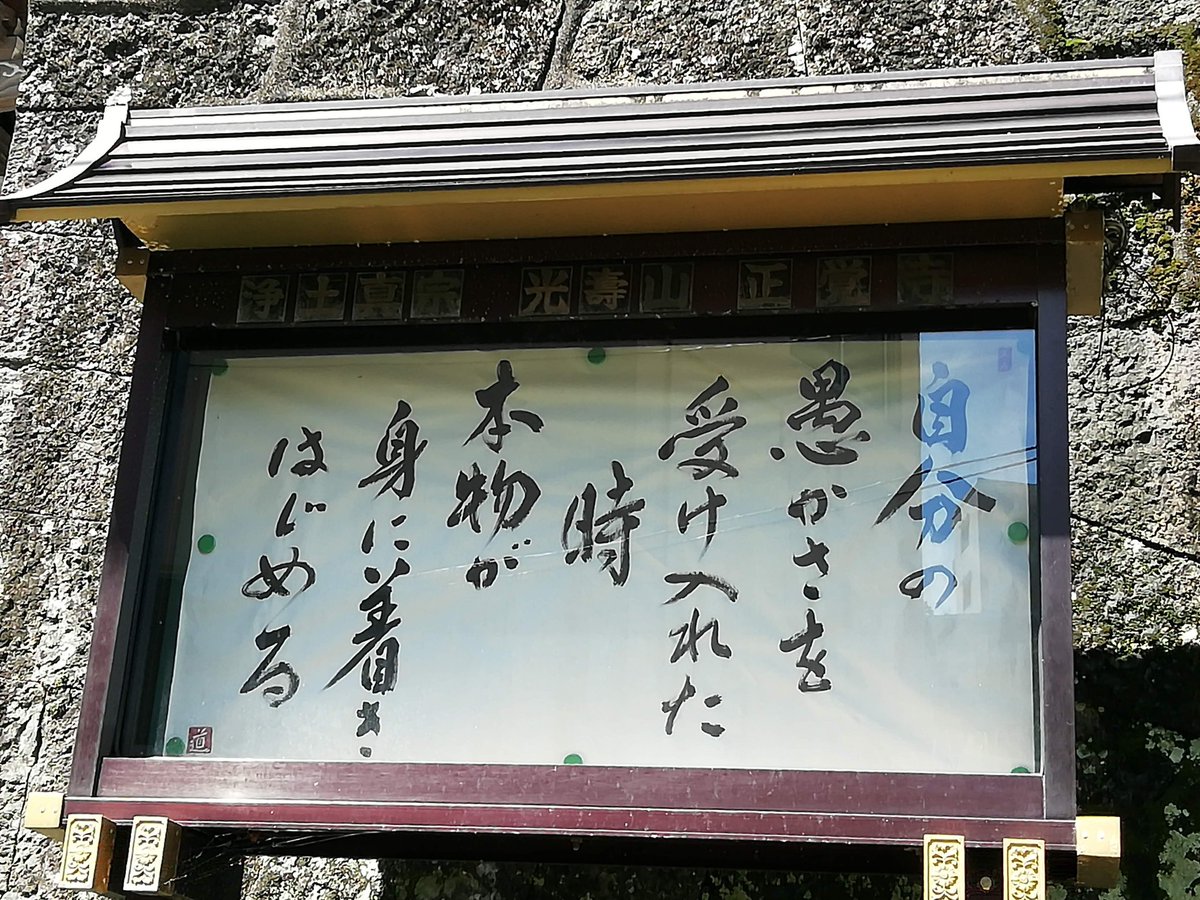 浄土真宗 光壽山 正覚寺
自分の
愚かさを
受け入れた
時
本物が
身に着き
はじめる
道